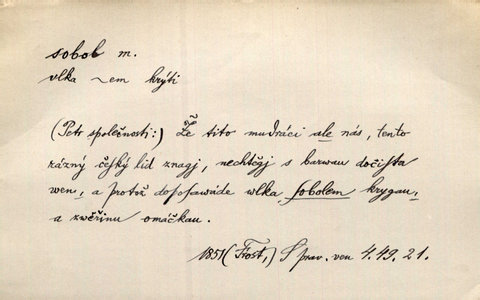 sobol m.
vlka ~em krýti
(Petr společnosti:) Že tito mudráci ale nás, tento
rázný čeſký lid znagj, nechtěgj s barwau dočiſta
wen, a protož doſoſawáde wlka ſobolem krygau,
a zwěřinu omáčkau.
1851 (Frost,) S prav. ven 4.49.21.